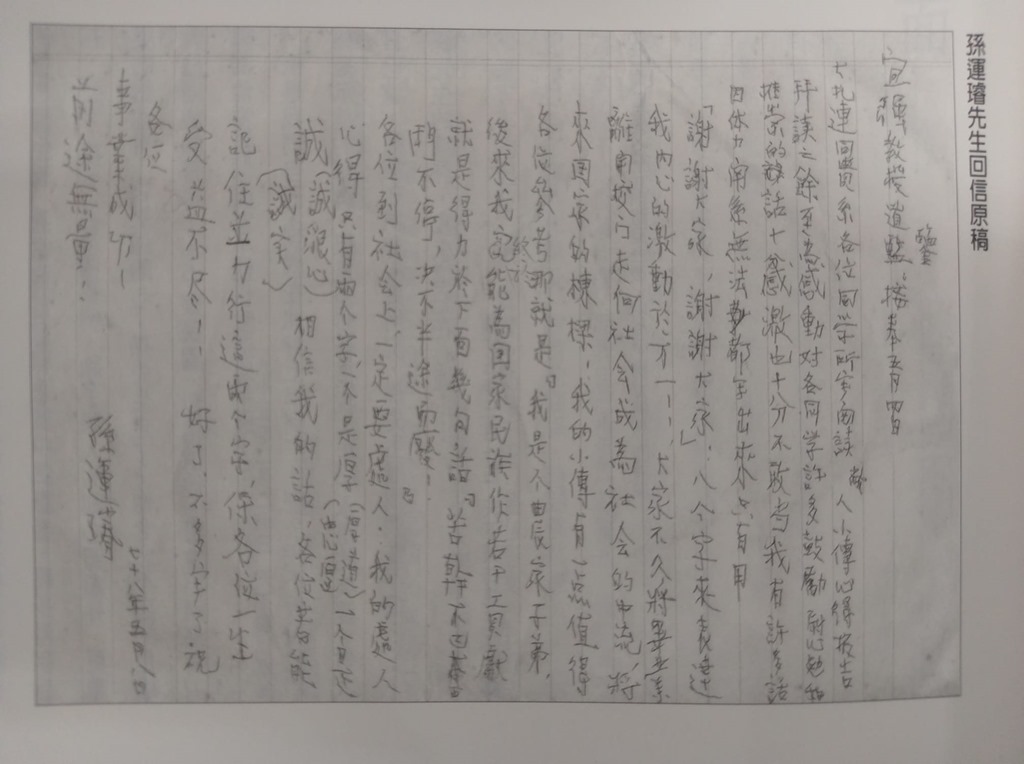 孫運璿先生回信原稿
教授道鑒：接奉五月四日
大札連同貴系各位同學所寫閱讀敝人小傳心得報告
拜讀之餘至為感動對各同学許多鼓勵
推崇的話十分感激也十分不敢当我有許多話
因体力關系無法都写出來只有用
「謝謝大家，謝謝大家」八个字來表達
我內心的激動於万一！大家不久將畢業
離開校门走向社会成為社会的中流，將
來国家的棟樑，我的小傳有一点值得
各位參考那就是『我是个農家子弟，
後來我能為国家民族作若干貢献
就是得力於下面幾句話『苦幹不已奮
鬥不停，决不半途而廢！』
各位到社会上，一定要處人，我的處人
心得只有兩个字，一个是厚（厚道）（忠厚）一个是
誠（誠懇心）（誠实）相信我的話，各位若能
記住並力行這兩个字，保各位一生
受益不尽！好了，不多写了祝
各位
事業成功！
前途無量！
孫運璿
七十八年五月八日